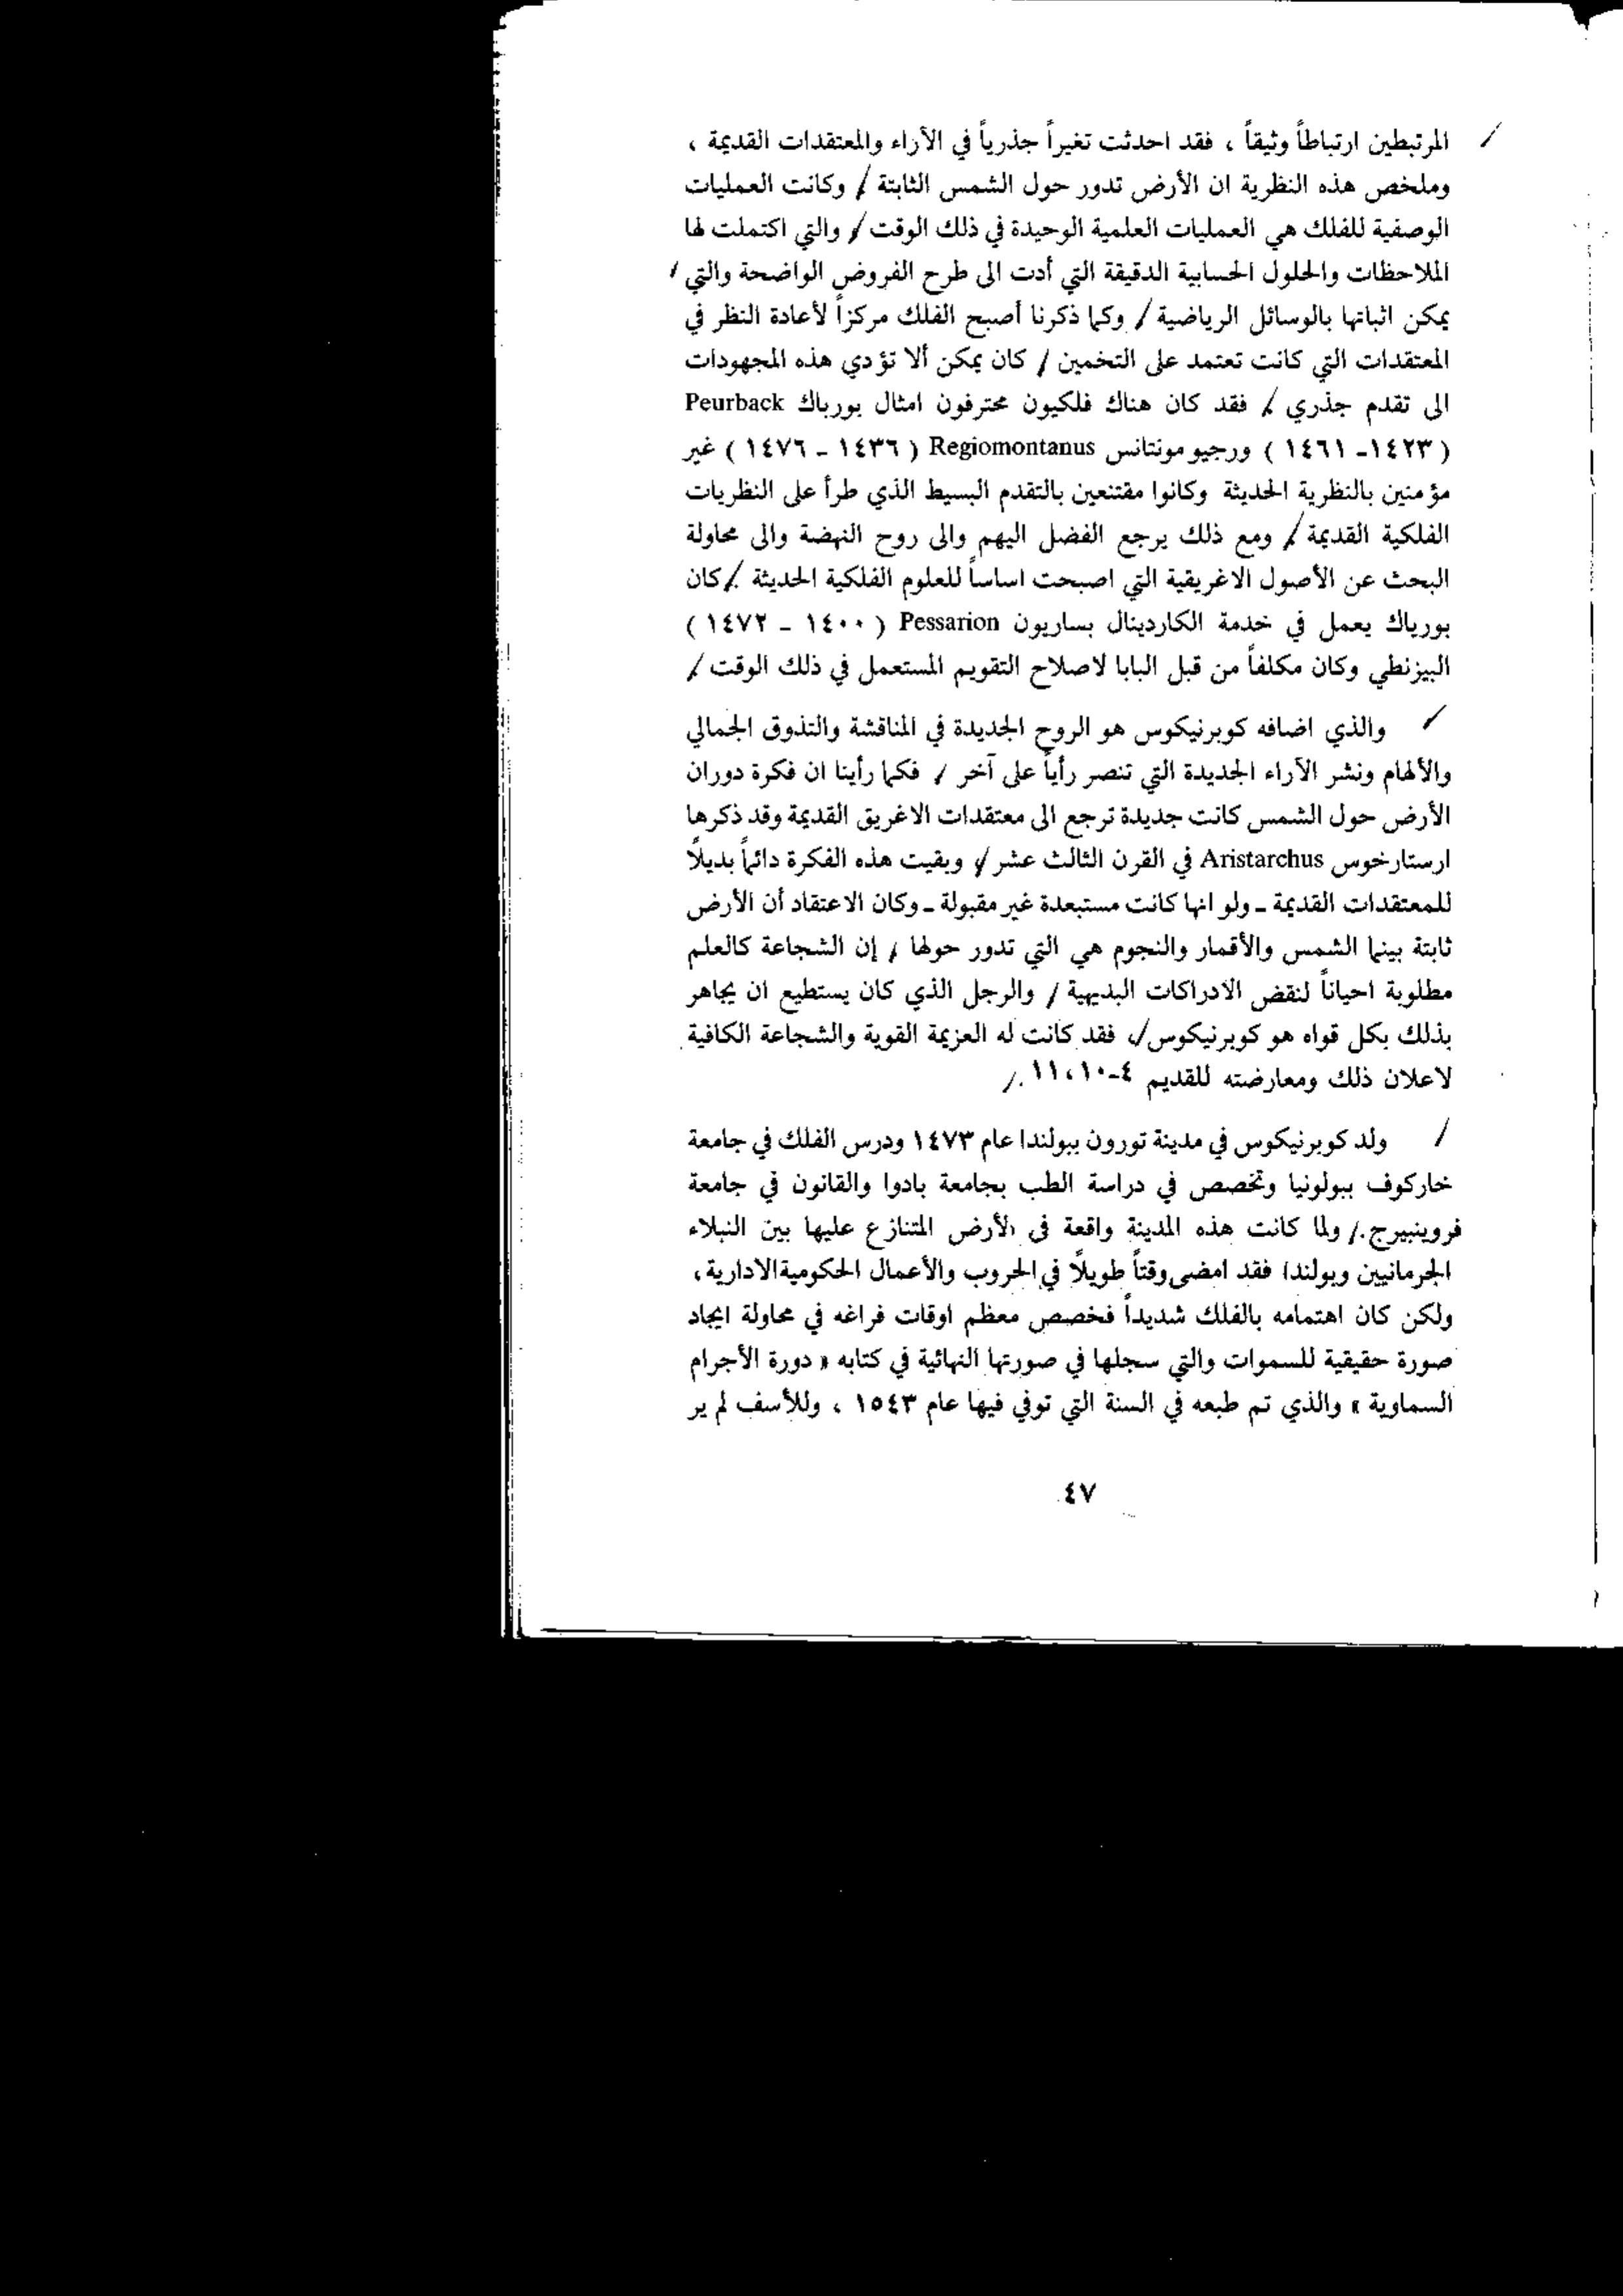 المرتبطين ارتباطاً وثيقاً ، فقد احدثت تغيراً جذرياً في الآراء والمعتقدات القديمة ،
وملخص هذه النظرية ان الأرض تدور حول الشمس الثابتة / وكانت العمليات
الوصفية للفلك هي العمليات العلمية الوحيدة في ذلك الوقت / والتي اكتملت لها
الملاحظات والحلول الحسابية الدقيقة التي أدت الى طرح الفروض الواضحة والتي /
يمكن اثباتها بالوسائل الرياضية / وكما ذكرنا أصبح الفلك مركزاً لأعادة النظر في
المعتقدات التي كانت تعتمد على التخمين / كان يمكن ألا تؤدي هذه المجهودات
الى تقدم جذري / فقد كان هناك فلكيون محترفون امثال بورباك Peurback
( ١٤٢٣- ١٤٦١ ) ورجيومونتانس Regiomontanus ( ١٤٣٦ - ١٤٧٦ ) غير
مؤمنين بالنظرية الحديثة وكانوا مقتنعين بالتقدم البسيط الذي طرأ على النظريات
الفلكية القديمة / ومع ذلك يرجع الفضل اليهم والى روح النهضة والى محاولة
البحث عن الأصول الاغريقية التي اصبحت اساساً للعلوم الفلكية الحديثة / كان
بورياك يعمل في خدمة الكاردينال بساريون Pessarion ( ١٤٠٠ - ١٤٧٢ )
البيزنطي وكان مكلفاً من قبل البابا لاصلاح التقويم المستعمل في ذلك الوقت /
والذي اضافه كوبرنيكوس هو الروح الجديدة في المناقشة والتذوق الجمالي
والألهام ونشر الآراء الجديدة التي تنصر رأياً على آخر / فكما رأينا ان فكرة دوران
الأرض حول الشمس كانت جديدة ترجع الى معتقدات الاغريق القديمة وقد ذكرها
ارستارخوس Aristarchus في القرن الثالث عشر / وبقيت هذه الفكرة دائماً بديلاً
للمعتقدات القديمة - ولو انها كانت مستبعدة غير مقبولة - وكان الاعتقاد أن الأرض
ثابتة بينما الشمس والأقمار والنجوم هي التي تدور حولها / إن الشجاعة كالعلم
مطلوبة احياناً لنقض الادراكات البديهية / والرجل الذي كان يستطيع ان يجاهر
بذلك بكل قواه هو كوبرنيكوس / ، فقد كانت له العزيمة القوية والشجاعة الكافية
لاعلان ذلك ومعارضته للقديم ٤-١٠، ١١ . /
ولد كوبرنيكوس في مدينة تورون ببولندا عام ١٤٧٣ ودرس الفلك في جامعة
خاركوف ببولونيا وتخصص في دراسة الطب بجامعة بادوا والقانون في جامعة
فروينبيرج . / ولما كانت هذه المدينة واقعة في الأرض المتنازع عليها بين النبلاء
الجرمانيين وبولندا فقد امضى وقتاً طويلاً في الحروب والأعمال الحكومية الادارية ،
ولكن كان اهتمامه بالفلك شديداً فخصص معظم اوقات فراغه في محاولة ايجاد
صورة حقيقية للسموات والتي سجلها في صورتها النهائية في كتابه « دورة الأجرام
السماوية » والذي تم طبعه في السنة التي توفي فيها عام ١٥٤٣ ، وللأسف لم ير
٤٧